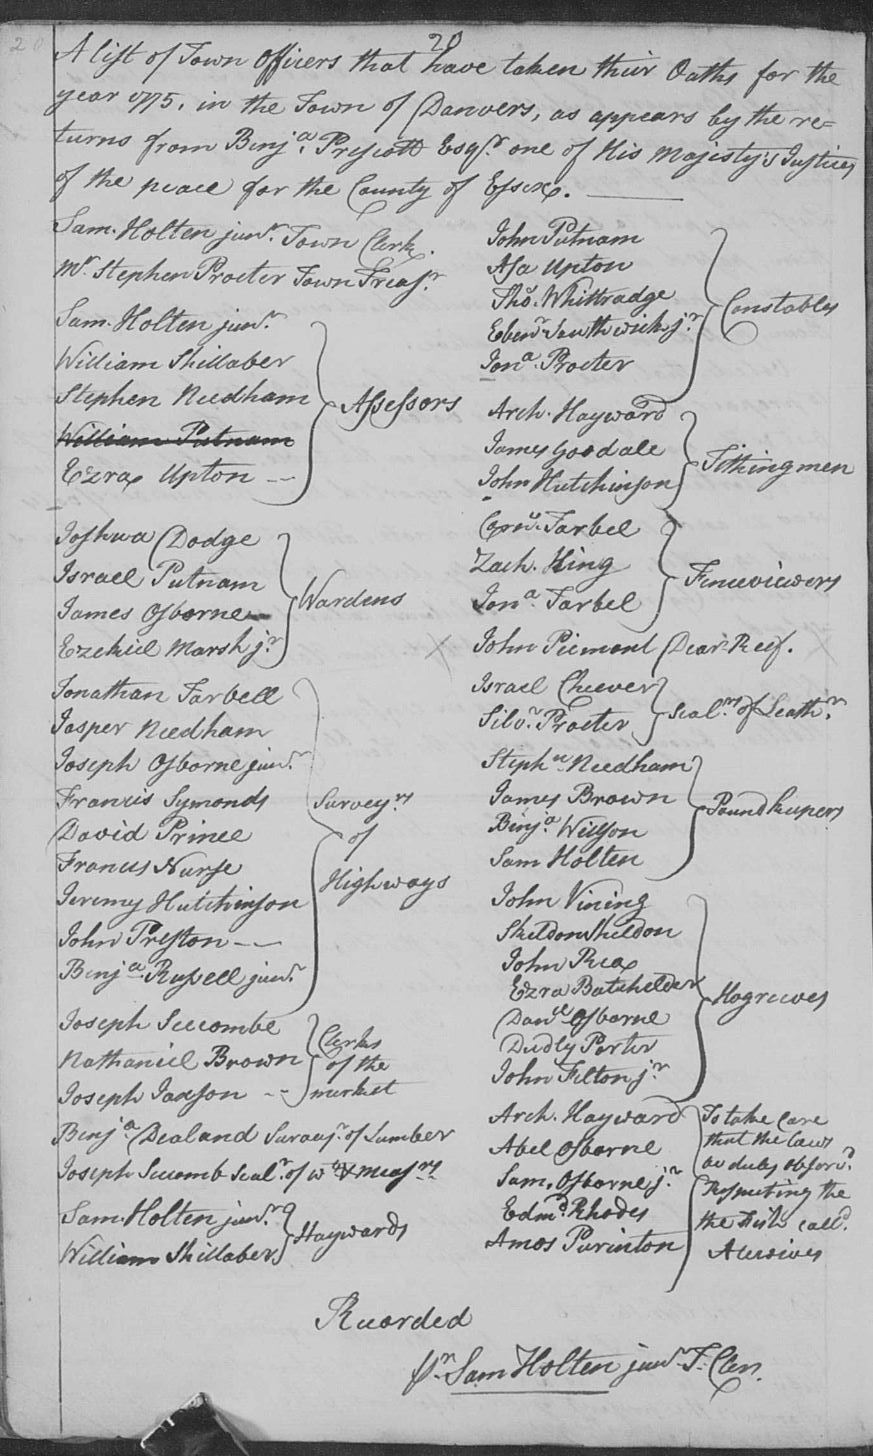 20
20
A list of Town Officers that have taken their Oaths for the
year 1775, in the Town of Danvers, as appears by the re=
turns from Benjª. Prescott Esqr. one of His Majesty's Justices
of the peace for the County of Essex.
Sam. Holten junr. Town Clerk.
Mr. Stephen Procter Town Treasr.
Sam. Holten junr.
William Shillaber
Stephen Needham
Assessors
William Putnam
Ezra Upton
Joshua Dodge
Israel Putnam
Wardens
James Osborne
Ezekiel Marsh jr.
Jonathan Tarbell
Jasper Needham
Joseph Osborne junr.
Francis Symonds
Surveyrs
David Prince
of
Francis Nurse
Highways
Jeremy Hutchinson
John Preston
Benjª. Russell junr.
Joseph Seccombe
Clerks
Nathaniel Brown
of the
Joseph Jackson
market
Benjª Dealand Survayr. of Lumber
Joseph Seccomb Sealr. of wts & measrs.
Sam. Holten junr.
Haywards
William Shillaber
John Putnam
Asa Upton
Thos. Whittradge
Constables
Ebenr. Southwick jr.
Jonª. Procter
Arch. Hayward
James Goodale
Tithingmen
John Hutchinson
Corns. Tarbel
Zach. King
Fenceviewers
Jonª. Tarbel
John Piemont Dear Reef.
Israel Cheever
Sealrs of Leathr.
Silvr. Procter
Stephn Needham
James Brown
Poundkeepers
Benjª. Willson
Sam Holten
John Vining
Skeldon Sheldon
John Rea
Ezra Batchelder
Hogreeves
Danˡ Osborne
Dudly Porter
John Felton jr.
Arch. Hayward
To take Care
Abel Osborne
that the Laws
be duly observd.
Sam. Osborne jr.
Respecting the
Edmd. Rhodes
the Fish calld.
Amos Purinton
Alewives
Recorded
pr. Sam Holten junr. T. Cler.